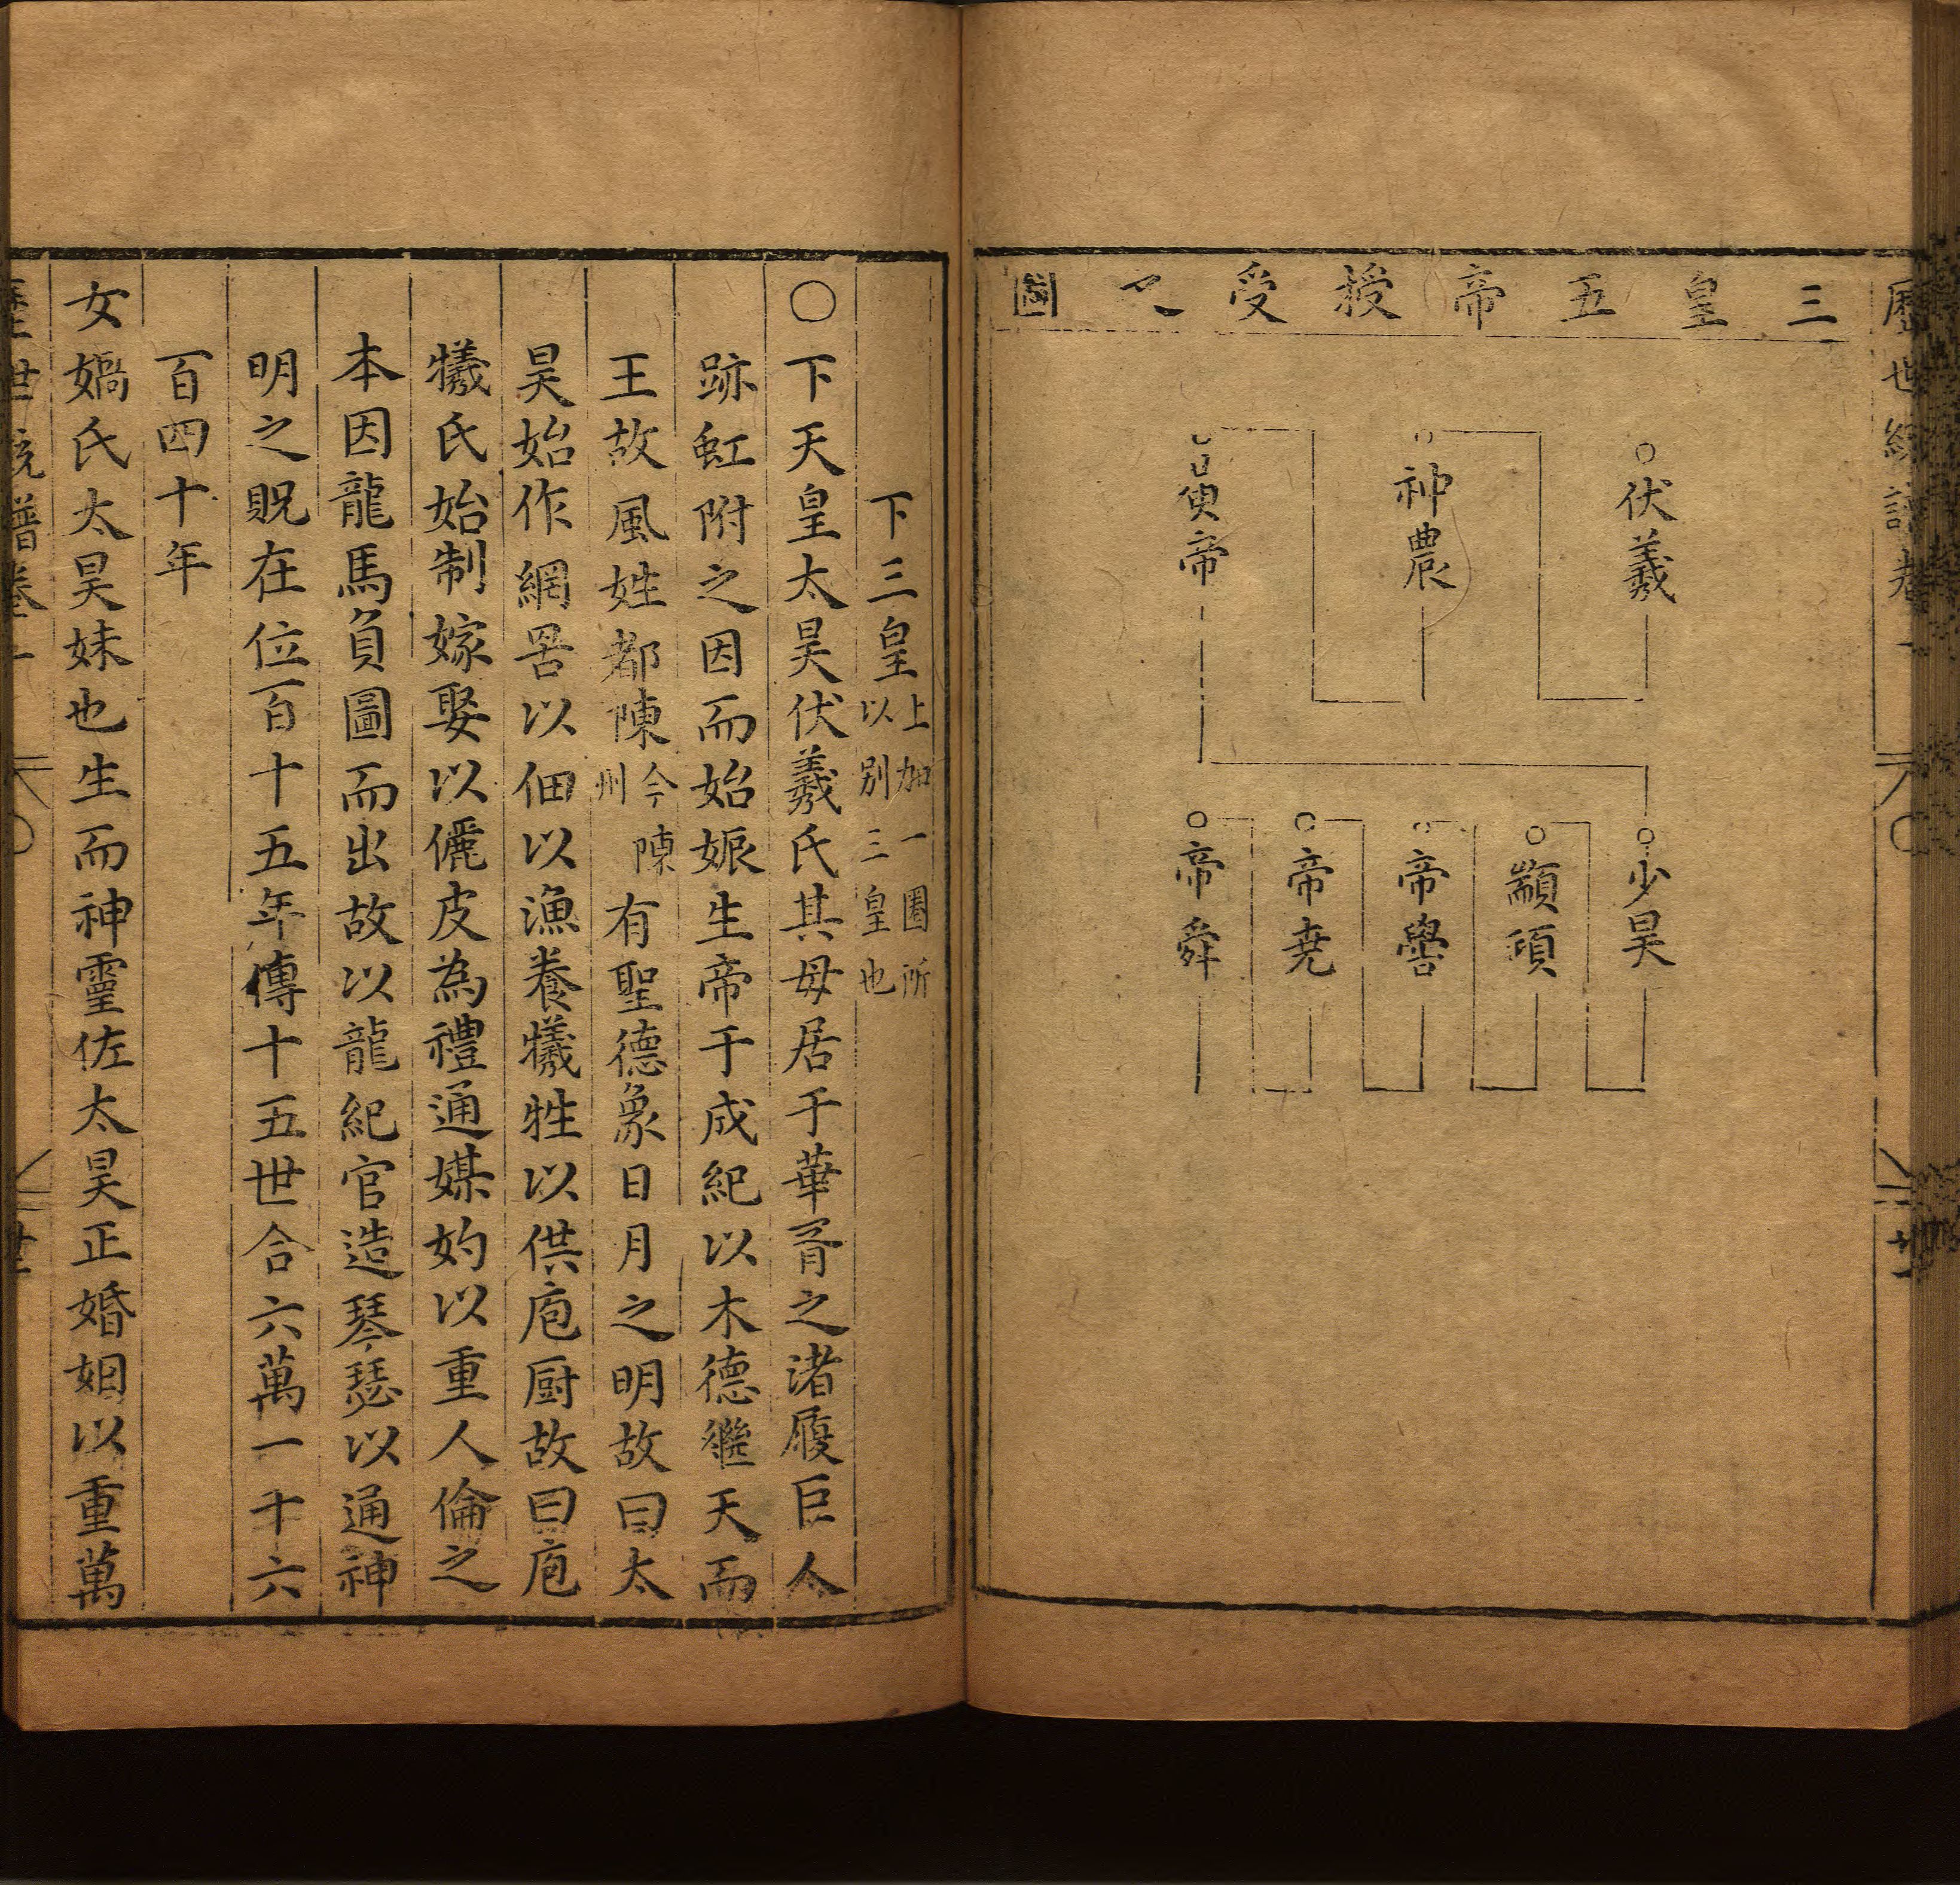 歷世統譜卷一
廿一
三皇五帝授受之圖
○伏羲
○神農
○黃帝
○少昊
○顓頊
○帝嚳
○帝堯
○帝舜
下三皇上加一圈所以別三皇也
○下天皇太昊伏羲氏其母居于華胥之渚履巨人
跡虹附之因而始娠生帝于成紀以木德繼天而
王故風姓都陳今陳州有聖德象日月之明故曰太
昊始作網罟以佃以漁養犧牲以供庖厨故曰庖
犧氏始制嫁娶以儷皮為禮通媒妁以重人倫之
本因龍馬負圖而出故以龍紀官造琴瑟以通神
明之貺在位百十五年傳十五世合六萬一十六
百四十年
女媧氏太昊妹也生而神靈佐太昊正婚姻以重萬
歷世統譜卷一